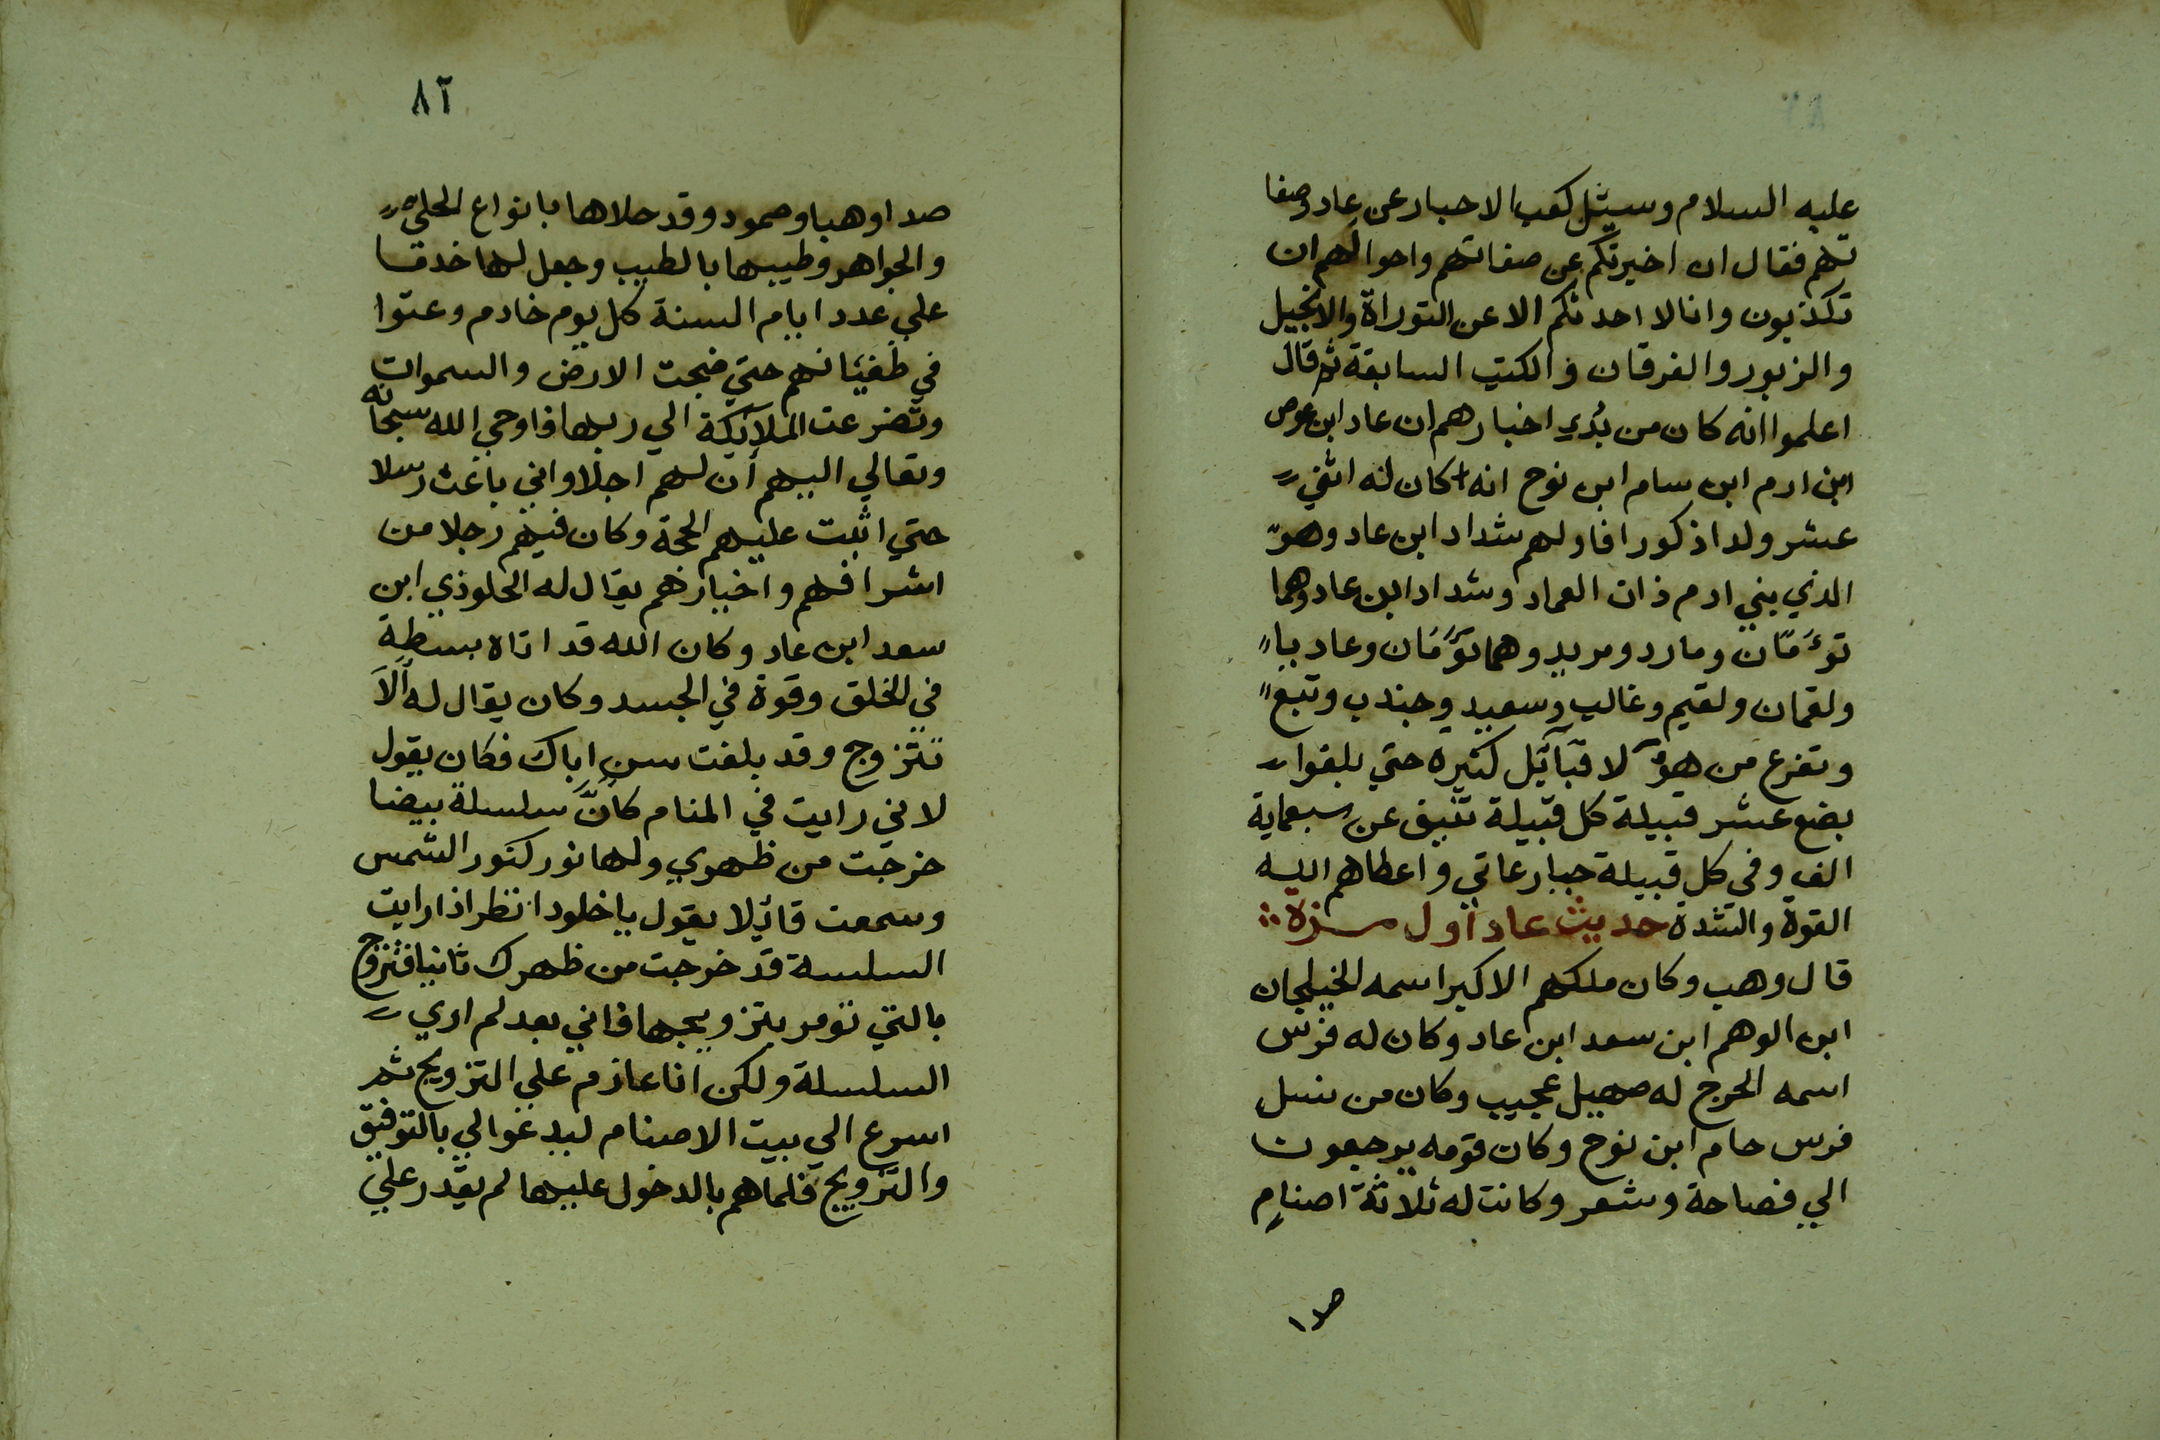 عليه السلام وسيئل كعب الاحبار عن عاد وصفا
تهم فقال ان اخبرتكم عن صفاتهم واحوالهم ان
تكذبون وانا لا احدثكم الا عن التوراة والانجيل
والزبور والفرقان والكتب السابقة ثم قال
اعلموا انه كان من بُدي اخبارهم ان عاد ابن عوص
ابن ارم ابن سام ابن نوح انه كان له اثني
عشر ولدا ذكورا فاولهم شداد ابن عاد وهو
الذي بني ارم ذات العماد وشداد ابن عاد وهما
توءمّان ومارد ومريد وهما توءمَان وعاد
ولقمان ولقيم وغالب وسعيد وجندب وتبع
وتفرع من هؤلا قبآئل كثيره حتي بلغوا
بضع عشر قبيلة كل قبيلة تنيف عن سبعماية
الف وفي كل قبيلة جبار عاتي واعطاهم الله
القوة والشدة حديث عاد اول مرة
قال وهب وكان ملكهم الاكبر اسمه الخيلجان
ابن الوهم ابن سعد ابن عاد وكان له فرس
اسمه الحرج له صهيل عجيب وكان من نسل
فرس حام ابن نوح وكان قومه يرجعون
الي فصاحة وشعر وكانت له ثلاثة اصنام
صدا
٨٢
صدا وهبا وصمود وقد حلاها بانواع الحلي
والجواهر وطيبها بالطيب وجعل لها خدما
علي عدد ايام السنة كل يوم خادم وعتوا
في طغيانهم حتي ضجت الارض والسموات
وتضرعت الملآئكة الي ربها فاوحي الله سبحانه
وتعالي اليهم ان لهم اجلا واني باعث رسلا
حتي اثبت عليهم الحجة وكان فيهم رجلا من
اشرافهم واخيارهم يقال له الخلوذي ابن
سعد ابن عاد وكان الله قد اتاه بسطة
في الخلق وقوة في الجسد وكان يقال له ألاَ
تتزوج وقد بلغت سن اباك فكان يقول
لاني رايت في المنام كأنَّ سلسلة بيضا
خرجت من ظهري ولها نور كنور الشمس
وسمعت قائلا يقول ياخلود انظر اذا رايت
السلسة قد خرجت من ظهرك ثانيا فتزوج
بالتي تومر بتزويجها فاني بعد لم اري
السلسلة ولكن انا عازم علي التزويج ثم
اسرع الي بيت الاصنام ليدعوا لي بالتوفيق
والتزويج فلما هم بالدخول عليها لم يقدر علي